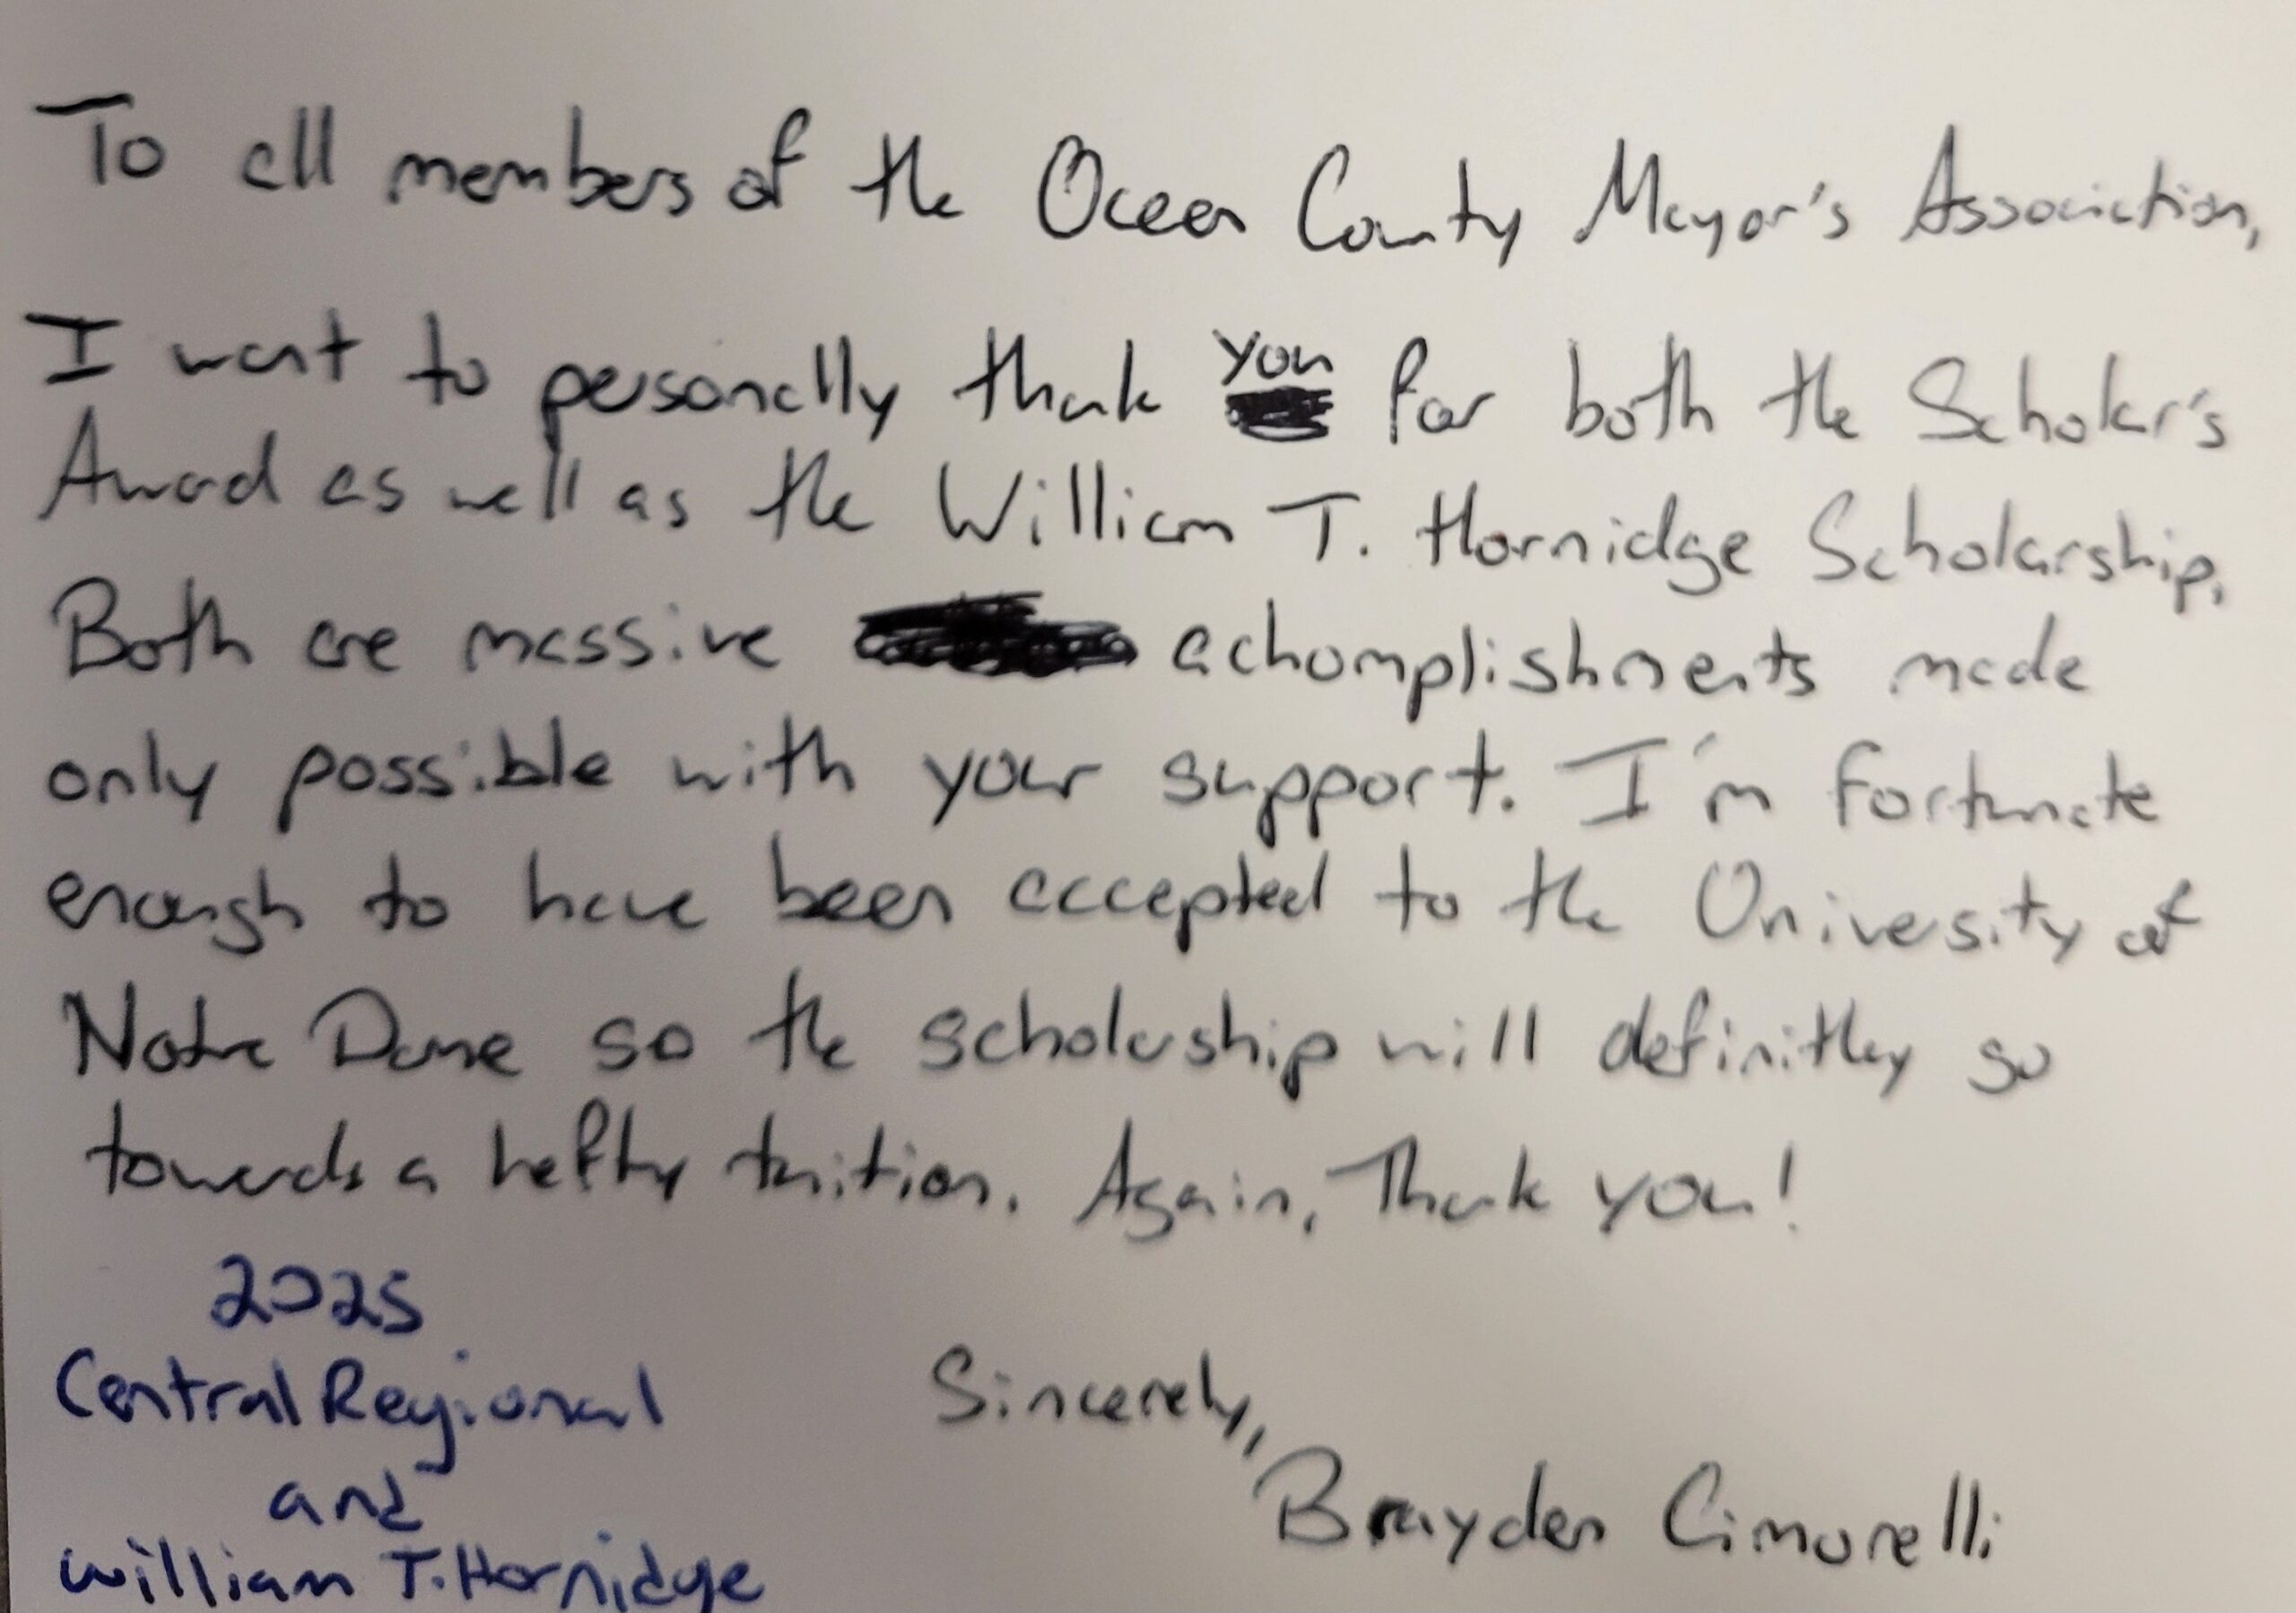 To all members of the Ocean County Mayor's Association,
I want to personally thank you for both the Scholar's
Award as well as the William T. Hornidge Scholarship.
Both are massive achomplishments made
only possible with your support. I'm fortunate
enough to have been accepted to the University of
Notre Dame so the scholarship will definitley go
towards a hefty tuition. Again, Thank you!
2025
Central Regional
and
William T. Hornidge
Sincerely,
Brayden Cimorelli